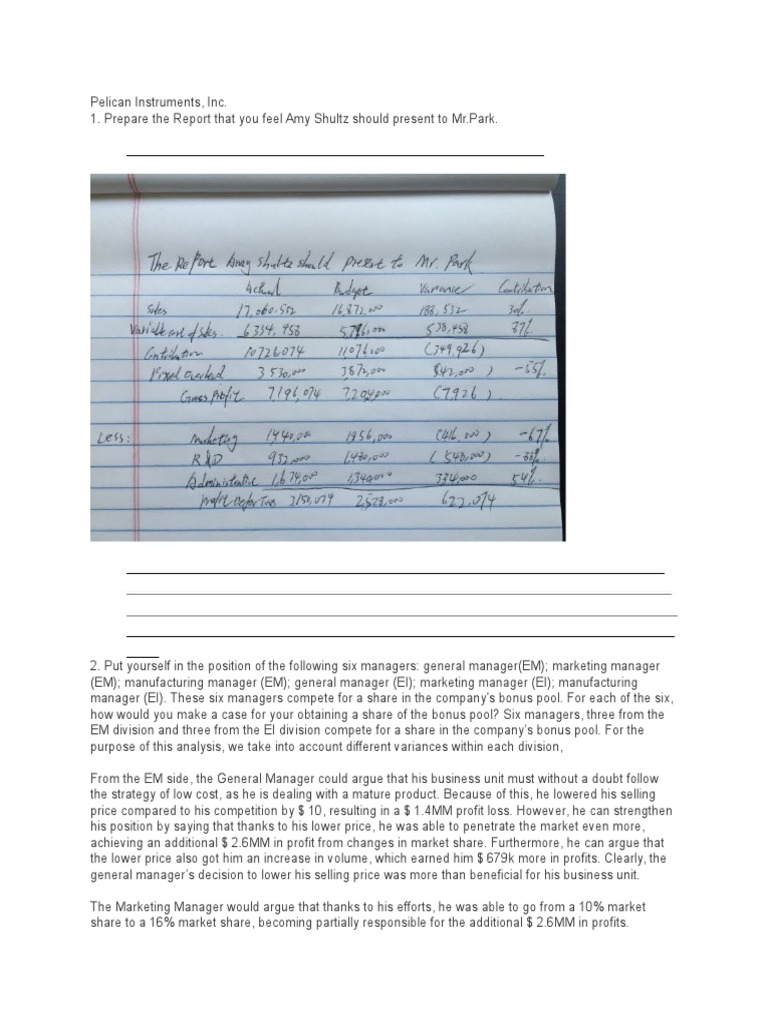 Pelican Instruments, Inc.
1. Prepare the Report that you feel Amy Shultz should present to Mr.Park.
The Report Amay Shultz should present to Mr. Park
Actual Budget Variance Contribution
Sales 17,060,552 16,872,000 188,532 30%
Variable cost of sales. 6334,458 5,796,000 538,458 87%
Contribution 10726074 11076,000 (349,926)
Fixed overhead 3530,000 3872,000 342,000) -55%
Gross Profit 7196,074 7204,000 (7926)
Less: Marketing 1440,000 1856,000 (416,000) -67%
R&D 932,000 1480,000 (548,000) -88%
Administrative 1,674,000 1,340,000 334,000 54%
Profit Before Taxes 3150,074 2,528,000 622,074
2. Put yourself in the position of the following six managers: general manager(EM); marketing manager
(EM); manufacturing manager (EM); general manager (EI); marketing manager (EI); manufacturing
manager (EI). These six managers compete for a share in the company's bonus pool. For each of the six,
how would you make a case for your obtaining a share of the bonus pool? Six managers, three from the
EM division and three from the EI division compete for a share in the company's bonus pool. For the
purpose of this analysis, we take into account different variances within each division,
From the EM side, the General Manager could argue that his business unit must without a doubt follow
the strategy of low cost, as he is dealing with a mature product. Because of this, he lowered his selling
price compared to his competition by $ 10, resulting in a $ 1.4MM profit loss. However, he can strengthen
his position by saying that thanks to his lower price, he was able to penetrate the market even more,
achieving an additional $ 2.6MM in profit from changes in market share. Furthermore, he can argue that
the lower price also got him an increase in volume, which earned him $ 679k more in profits. Clearly, the
general manager's decision to lower his selling price was more than beneficial for his business unit.
The Marketing Manager would argue that thanks to his efforts, he was able to go from a 10% market
share to a 16% market share, becoming partially responsible for the additional $ 2.6MM in profits.